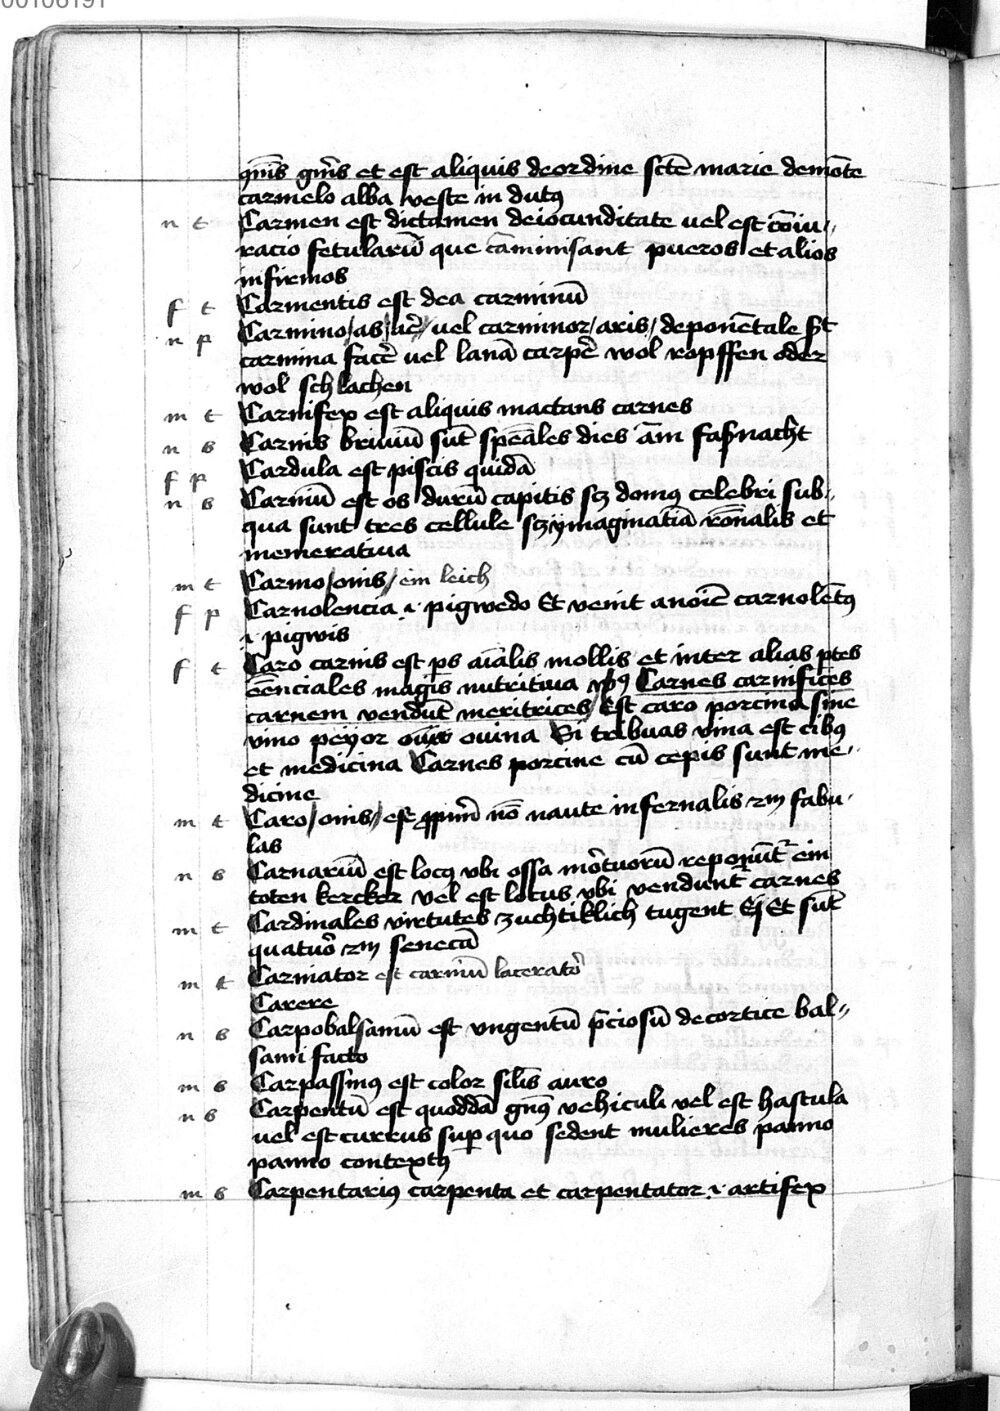 00106191
qm̄s gn̄is et est aliquis deordine sctē marie demōte
carmelo alba veste in dutꝰ
n t Carmen est dictamen deiocunditate uel est cōiu-
racio fetularū que caminisant pueros et alios
infirmos
f t Carmentis est dea carminū
n p Carmino/as/ar̄e/ uel carminor/aris/ deponētale st̄
carmina facer̄ uel lanā carper̄ wol ropffen oder
wol schlachen
m t Carnifex est aliquis mactans carnes
n s Carnis briuiū sūt spēales dies am̄ fasnacht
f p Cardula est piscis quidā
n s Carniū est os durū capitis scꝫ domꝰ celebri sub-
qua sunt tres cellule scꝫ ymaginatiā rōnalis et
memeratiua
m t Carmo/onis/ ein leich
f p Carnolencia .i. pigwedo Et venit a noīe carnolētꝰ
.i. pigwis
f t Caro carnis est ps aīalis mollis et inter alias ptes
eēnciales magis nutritiua vpꝰ Carnes carnifices
carnem vendūt meritrices/ Est caro porcina sine
vino peyor ouis ouina Si tribuas vina est cibꝰ
et medicina Carnes porcine cū cepis sunt me-
dicine
m t Caro/onis/ est ꝓpriū nō naute infernalis ꝛm fabu-
las
n s Carnariū est locꝰ vbi ossa mōtuorū reponūt̄ ein
toten kercker vel est locus vbi vendunt̄ carnes
m t Cardinales virtutes zuchtiklich tugent Ei Et sūt
quatuōr ꝛm senecā
m t Carniator est carniū laceratōr
Carere
n s Carpobalsamū est vngentū p̄ciosū de cortice bal-
sami facto
m s Carpassinꝰ est color sil̄is auro
n s Carpentū est quoddā gnꝰ vehiculi vel est hastula
uel est currus sup quo sedent mulieres panno
panno contextꝰ
m s Carpentariꝰ carpenta et carpentator .i. artifex